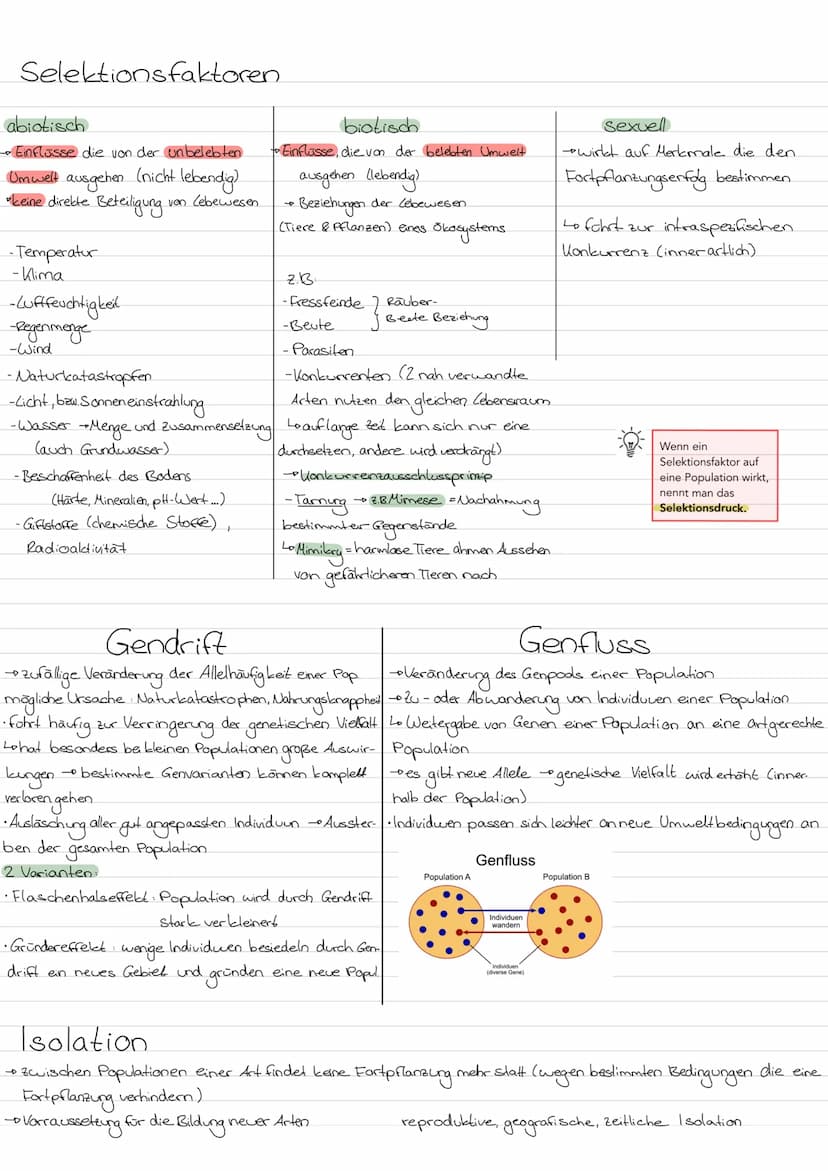 Selektionsfaktoren
abiotisch
→ Einflüsse die von der unbelebten
Umwelt ausgehen (nicht lebendig)
• keine direkte Beteiligung von Lebewesen
- Temperatur
- Klima
- Luftfeuchtigkeit
- Regenmenge
- Wind
- Naturkatastropfen
- Licht, bzw. Sonneneinstrahlung
- Wasser → Menge und Zusammensetzung
(auch Grundwasser)
- Beschaffenheit des Bodens
(Härte, Mineralien, pH-Wert...)
- Giftstoffe (chemische Stoffe),
Radioaktivität
biotisch
→ Einflüsse, die von der belebten Umwelt
ausgehen (lebendig)
→ Beziehungen der Lebewesen
(Tiere & Pflanzen) eines Ökosystems
z.B.
- Fressfeinde } Räuber-
- Beute } Beute Beziehung
- Parasiten
- Konkurrenten (2 nah verwandte
Arten nutzen den gleichen Lebensraum
↳ auf lange Zeit kann sich nur eine
durchsetzen, andere wird verdrängt)
→ Konkurrenzausschlussprinzip
- Tarnung → z.B. Mimese = Nachahmung
bestimmter Gegenstände
↳ Mimikry = harmlose Tiere ahmen Aussehen
von gefährlicheren Tieren nach
sexuell
→ wirkt auf Merkmale die den
Fortpflanzungserfolg bestimmen
↳ führt zur intraspezifischen
Konkurrenz (innerartlich)
Wenn ein
Selektionsfaktor auf
eine Population wirkt,
nennt man das
Selektionsdruck.
Gendrift
→ zufällige Veränderung der Allelhäufigkeit einer Pop.
mögliche Ursache: Naturkatastrophen, Nahrungsknappheit
• führt häufig zur Verringerung der genetischen Vielfalt
↳ hat besonders bei kleinen Populationen große Auswir-
kungen → bestimmte Genvarianten können komplett
verloren gehen
• Auslöschung aller gut angepassten Individuun → Ausster-
ben der gesamten Population
2 Varianten:
• Flaschenhalseffekt: Population wird durch Gendrift
stark verkleinert
• Gründereffekt: wenige Individuen besiedeln durch Gen-
drift ein neues Gebiet und gründen eine neue Popul.
Genfluss
→ Veränderung des Genpools einer Population
→ Zu- oder Abwanderung von Individuen einer Population
↳ Weitergabe von Genen einer Population an eine artgerechte
Population
→ es gibt neue Allele → genetische Vielfalt wird erhöht (inner
halb der Population)
• Individuen passen sich leichter an neue Umweltbedingungen an
Genfluss
Population A
Population B
Individuen
wandern
Individuen
(diverse Gene)
Isolation
→ zwischen Populationen einer Art findet keine Fortpflanzung mehr statt (wegen bestimmten Bedingungen die eine
Fortpflanzung verhindern)
→ Vorraussetzung für die Bildung neuer Arten
reproduktive, geografische, zeitliche Isolation